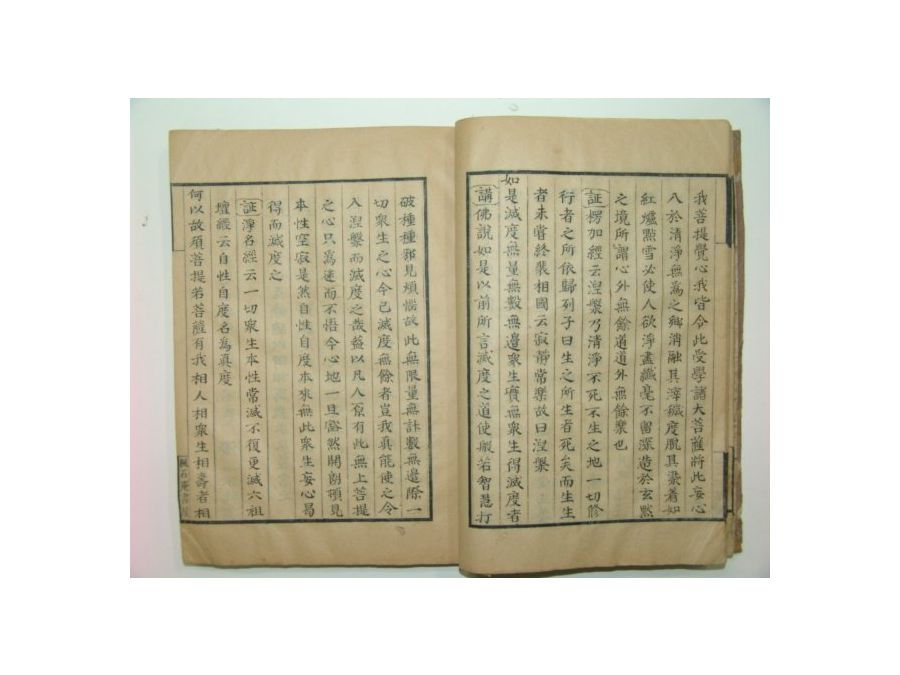 我菩提覺心我皆令此受學諸大菩薩將此妄心
入於清淨無為之鄉消融其滓穢度脫其染着如
紅爐點雪必使人欲淨盡纖毫不留深造於玄黙
之境所謂心外無餘道道外無餘槃也
証楞加經云涅槃乃清淨不死不生之地一切修
行者之所依歸列子曰生之所生者死矣而生生
者未嘗終裴相國云寂靜常樂故曰涅槃
如是滅度無量無數無邊衆生實無衆生得滅度者
講佛說如是以前所言滅度之道使般若智慧打
破種種邪見煩惱故此無限量無計數無邊際一
切衆生之心今已滅度無餘者豈我真能使之令
入涅槃而滅度之哉益以凡人原有此無上菩提
之心只為迷而不悟今心地一旦豁然開朗頓見
本性空寂是然自性自度本來無此衆生妄心曷
得而滅度之
証淨名經云一切衆生本性常滅不復更滅六祖
壇經云自性自度名為真度
何以故須菩提若菩薩有我相人相衆生相壽者相
石庵書屋